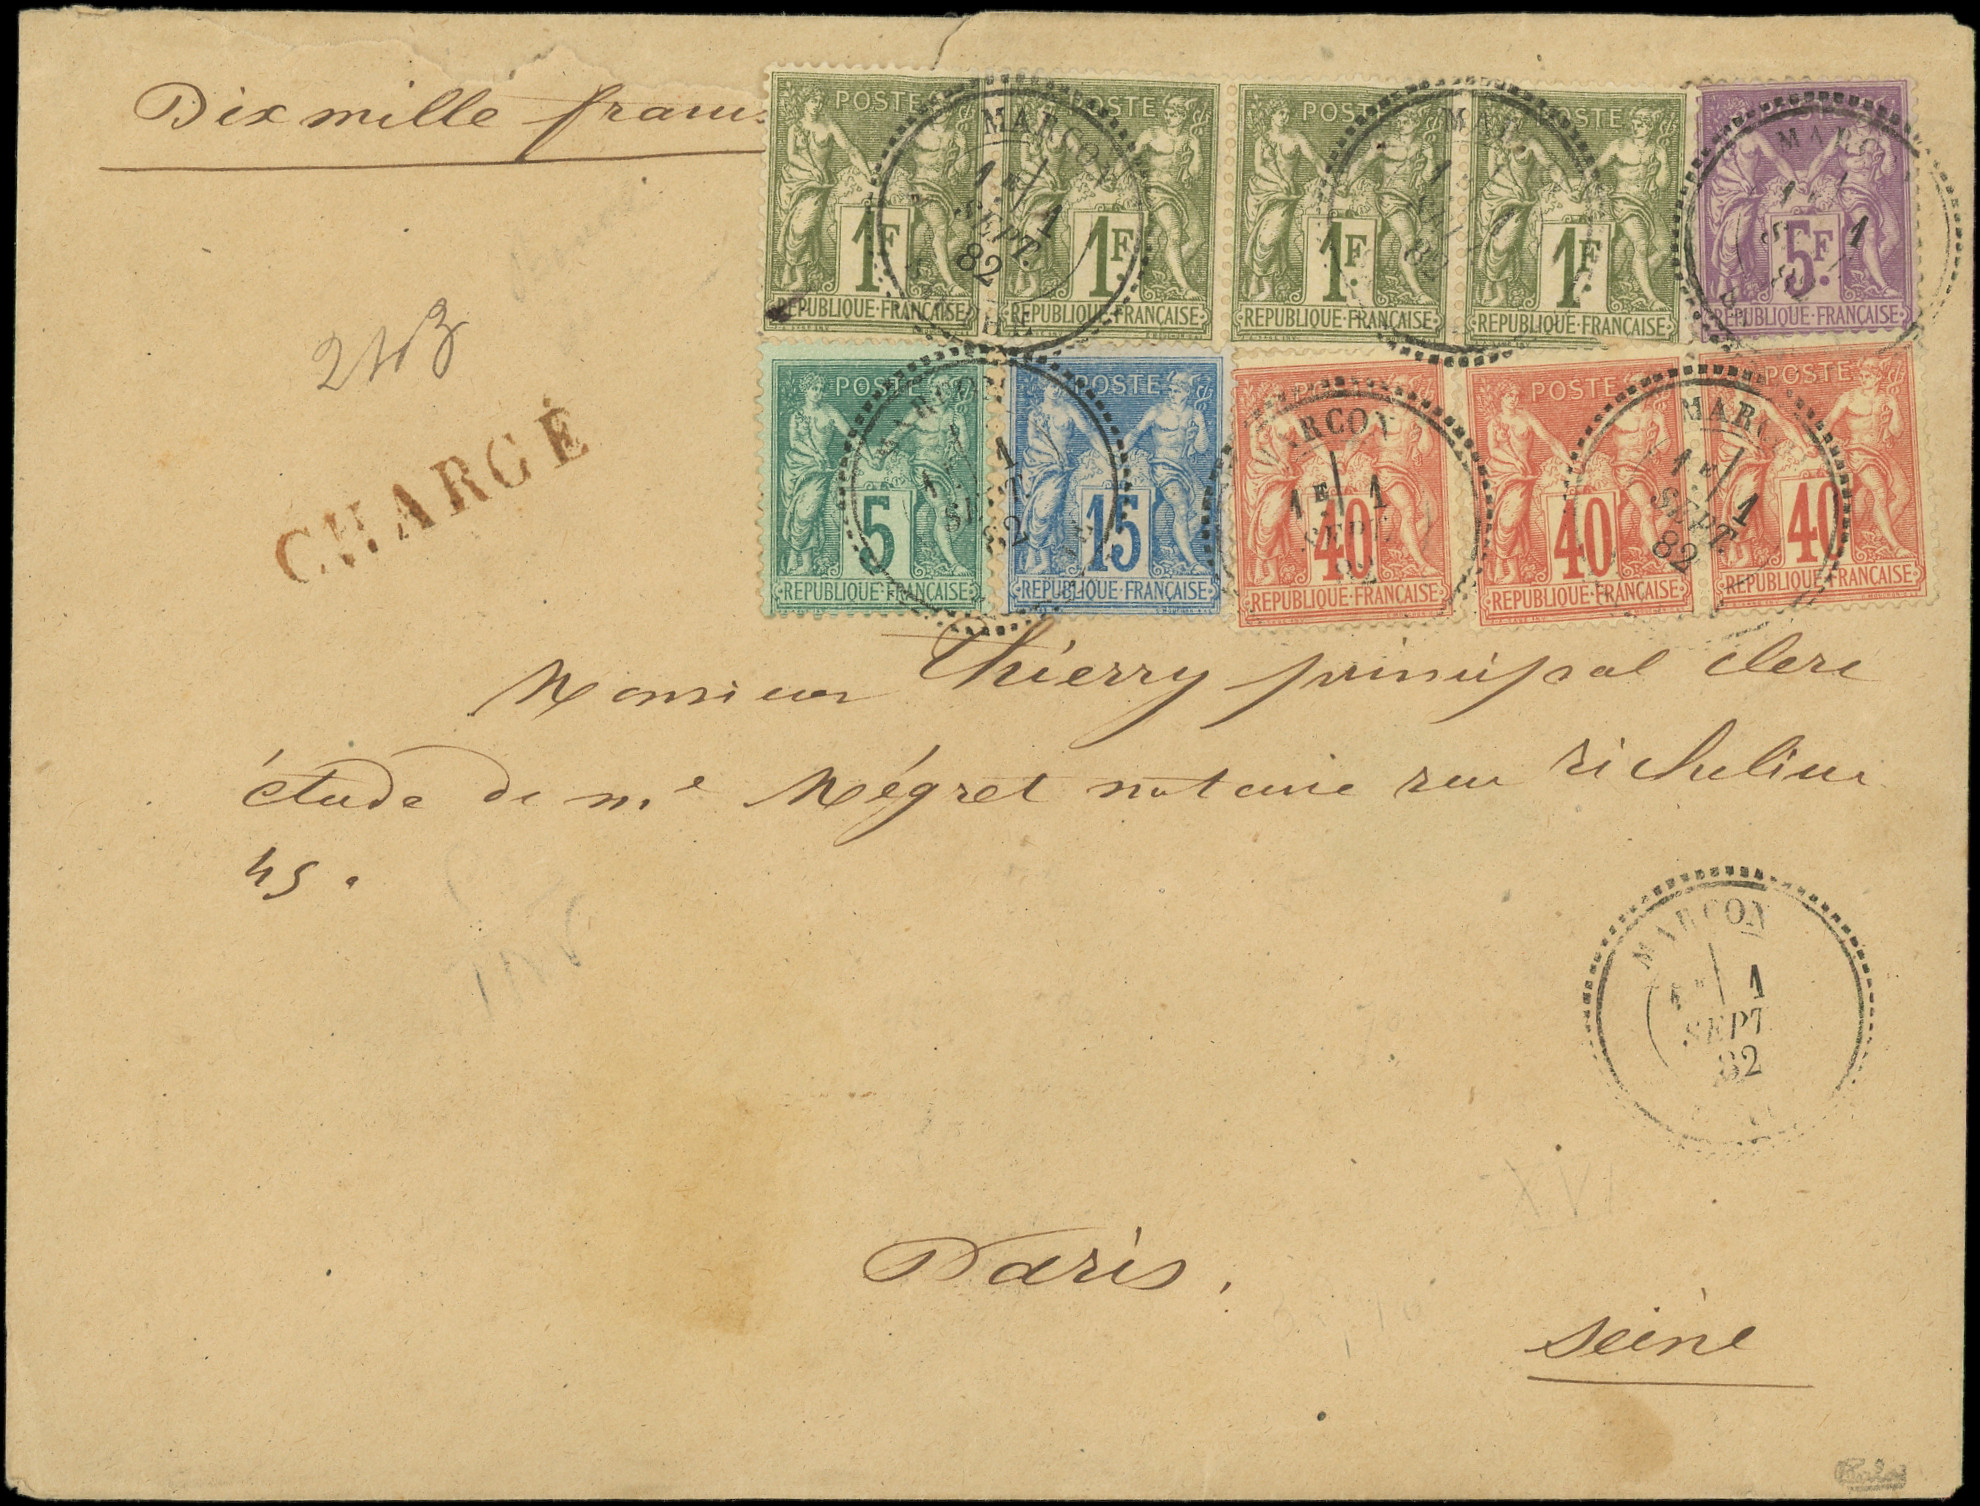 Dix mille francs
POSTE POSTE POSTE POSTE POSTE
1F. 1F. 1F. 1F. 5F.
REPUBLIQUE·FRANÇAISE REPUBLIQUE·FRANÇAISE REPUBLIQUE·FRANÇAISE REPUBLIQUE·FRANÇAISE REPUBLIQUE·FRANÇAISE
MARÇON
1E 1
SEPT.
82
SARTHE
POSTE POSTE POSTE POSTE POSTE
5 15 40 40 40
REPUBLIQUE·FRANÇAISE REPUBLIQUE·FRANÇAISE REPUBLIQUE·FRANÇAISE REPUBLIQUE·FRANÇAISE REPUBLIQUE·FRANÇAISE
CHARGÉ
Monsieur Thierry principal clerc
étude de me Mégret notaire rue richelieu
45.
MARÇON
1E 1
SEPT
82
Paris.
Seine